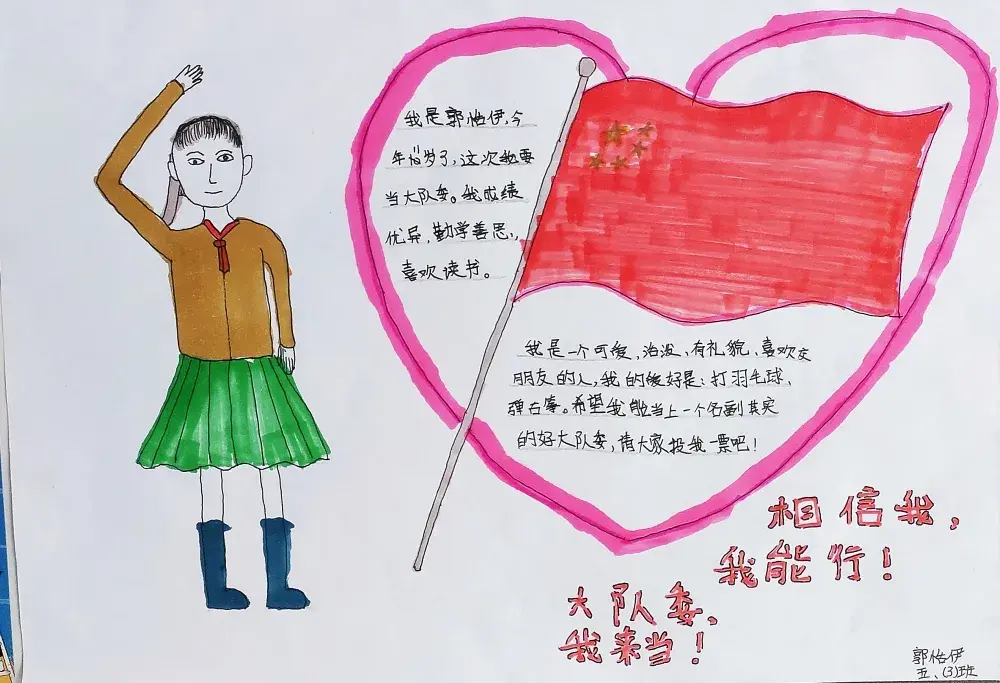 我是郭怡伊,今
年10岁了,这次我要
当大队委。我成绩
优异,勤学善思,
喜欢读书。
我是一个可爱,活泼,有礼貌、喜欢交
朋友的人,我的爱好是:打羽毛球、
弹古筝。希望我能当上一个名副其实
的好大队委,请大家投我一票吧!
相信我,
我能行!
大队委,
我来当!
郭怡伊
五、(3)班